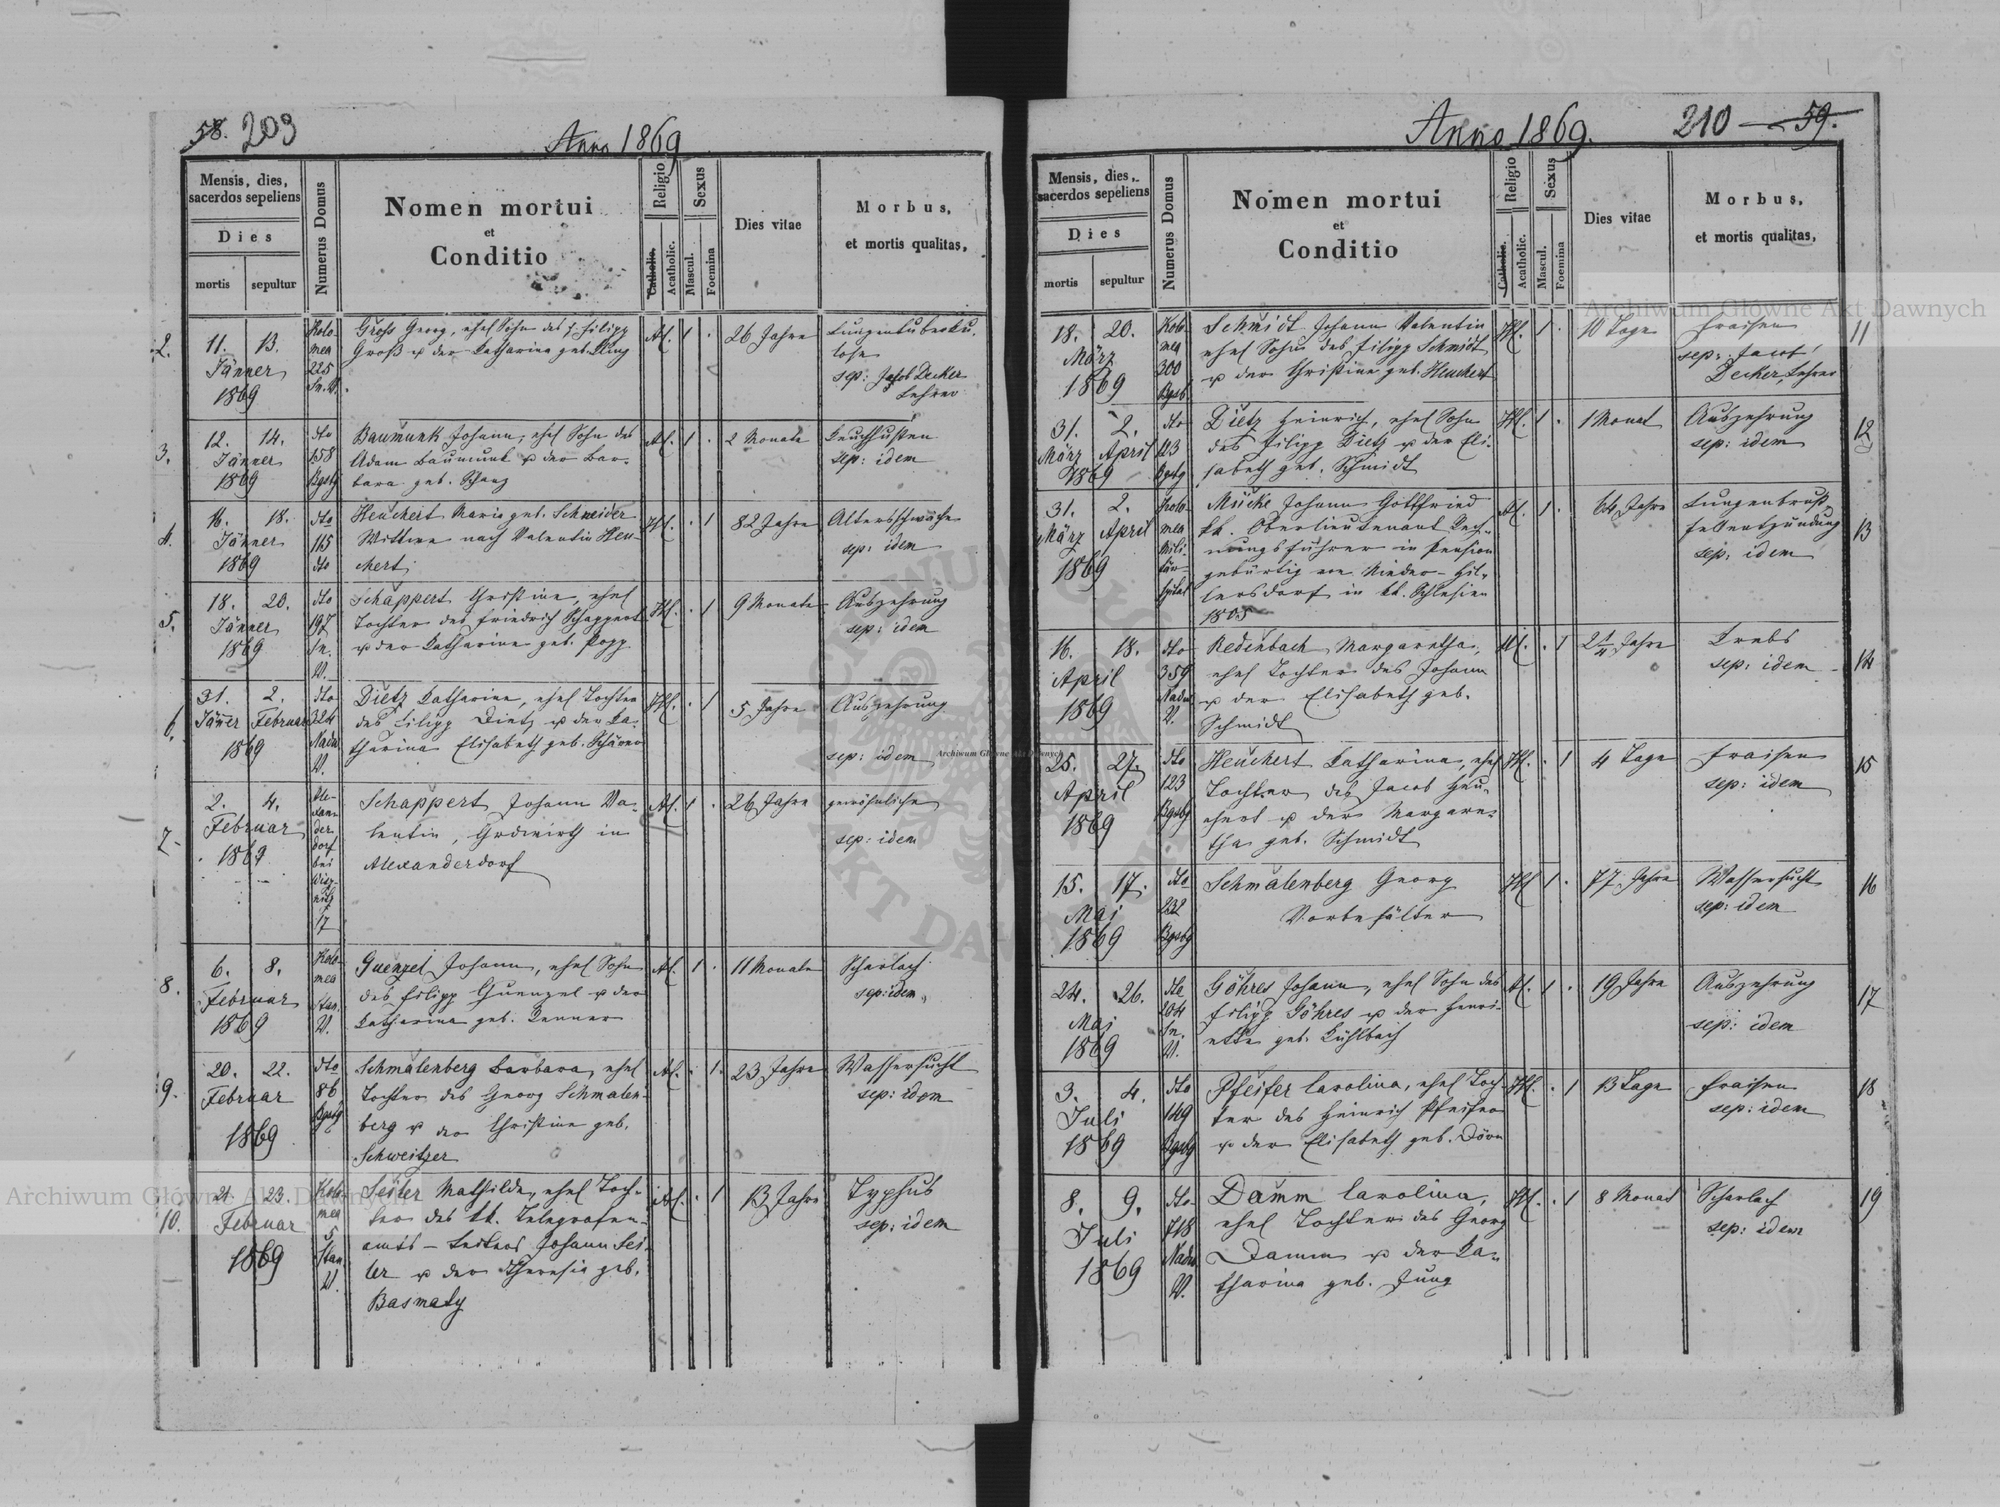 58. 203
Anno 1869
Mensis, dies,
sacerdos sepeliens
Dies
mortis
sepultur
Numerus Domus
Nomen mortui
et
Conditio
Religio
Catholic.
Acatholic.
Sexus
Mascul.
Foemina
Dies vitae
Morbus,
et mortis qualitas,
2.
11. 13.
Jänner
1869
Kolo
mea
225
Groß Georg, ehel Sohn des Filipp
Groß u der Katharina geb. Kling
1
26 Jahre
Lungentuberku.
lose
sep: Jakob Decker
Lehrer
3.
12. 14.
Jänner
1869
dto
158
Bgsbg
Baumunk Johann, ehel Sohn des
Adam Baumunk u der Bar-
bara geb. Schanz
1
2 Monate
Keuchhusten
sep: idem
4.
16. 18.
Jänner
1869
dto
115
dto
Heuchert Maria geb. Schneider
Wittwe nach Valentin Heu-
chert
1
82 Jahre
Altersschwäche
sep: idem
5.
18. 20.
Jänner
1869
dto
197
Schappert Christine, ehel
Tochter des Friedrich Schappert
u der Katharina geb. Popp
1
9 Monate
Auszehrung
sep: idem
6.
31. 2.
Jäner Februar
1869
dto
324
Nadw
V.
Dietz Katharina, ehel Tochter
des Filipp Dietz u der Ka-
tharina Elisabeth geb.
1
5 Jahre
Auszehrung
sep: idem
7.
2. 4.
Februar
1869
Ale-
xan-
der
dorf
bei
17
Schappert Johann Va-
lentin, Grdwirth in
Alexanderdorf
1
26 Jahre
gewöhnliche
sep: idem
8.
6. 8.
Februar
1869
Kolo-
mea
Stan.
V.
Guenzel Johann, ehel Sohn
des Filipp Guenzel u der
Katharina geb. Kenner
1
11 Monate
Scharlach
sep: idem
9.
20. 22.
Februar
1869
dto
86
Bgsbg
Schmalenberg Barbara, ehel
Tochter des Georg Schmalen-
berg u der Christine geb.
Schweitzer
1
23 Jahre
Wassersucht
sep: idem
10.
21. 23.
Februar
1869
Kolo
mea
5
Stan
V.
Seiler Mathilde, ehel Toch-
ter des kk. Telegrafen-
amts - Leiters Johann Sei-
ler u der Theresia geb.
Basmaty
1
13 Jahre
Typhus
sep: idem
Anno 1869.
210 59.
Mensis, dies,
sacerdos sepeliens
Dies
mortis
sepultur
Numerus Domus
Nomen mortui
et
Conditio
Religio
Catholic.
Acatholic.
Sexus
Mascul.
Foemina
Dies vitae
Morbus,
et mortis qualitas,
18. 20.
März
1869
Kolo
mea
300
Bgsb
Schmidt Johann Valentin
ehel Sohn des Filipp Schmidt
u der Christine geb. Heuchert
1
10 Tage
Fraisen
sep: Jacob
Decker, Lehrer
11
31. 2.
März April
1869
dto
Bgsbg
Dietz Heinrich, ehel Sohn
des Filipp Dietz u der Eli-
sabeth geb. Schmidt
1
1 Monat
Auszehrung
sep: idem
12
31. 2.
März April
1869
Kolo
mea
Mili-
tär-
spital
Mücke Johann Gottfried
kk. Oberlieutenant Rech-
nungsführer in Pension
gebürtig von Nieder-Hil-
lersdorf in kk. Schlesien
1805
1
64 Jahre
Lungenbrust
fellentzündung
sep: idem
13
16. 18.
April
1869
dto
359
Nadw
V.
Redenbach Margaretha,
ehel Tochter des Johann
u der Elisabeth geb.
Schmidt
1
2 1/4 Jahre
Krebs
sep: idem
14
25. 27.
April
1869
dto
123
Bgsbg
Heuchert Katharina, ehel
Tochter des Jacob Heu-
chert u der Margare-
tha geb. Schmidt
1
4 Tage
Fraisen
sep: idem
15
15. 17.
Mai
1869
dto
232
Bgsbg
Schmalenberg Georg
1
77 Jahre
Wassersucht
sep: idem
16
24. 26.
Mai
1869
dto
204
Göhres Johann, ehel Sohn des
Filipp Göhres u der Henri-
ette geb. Kühlbach
1
19 Jahre
Auszehrung
sep: idem
17
3. 4.
Juli
1869
dto
149
Bgsbg
Pfeifer Carolina, ehel Toch
ter des Heinrich Pfeifer
u der Elisabeth geb. Dörr
1
13 Tage
Fraisen
sep: idem
18
8. 9.
Juli
1869
dto
718
Nadw
V.
Damm Carolina,
ehel Tochter des Georg
Damm u der Ka-
tharina geb. Jung
1
8 Monat
Scharlach
sep: idem
19
Archiwum Główne Akt Dawnych
Archiwum Główne Akt Dawnych
Archiwum Główne Akt Dawnych